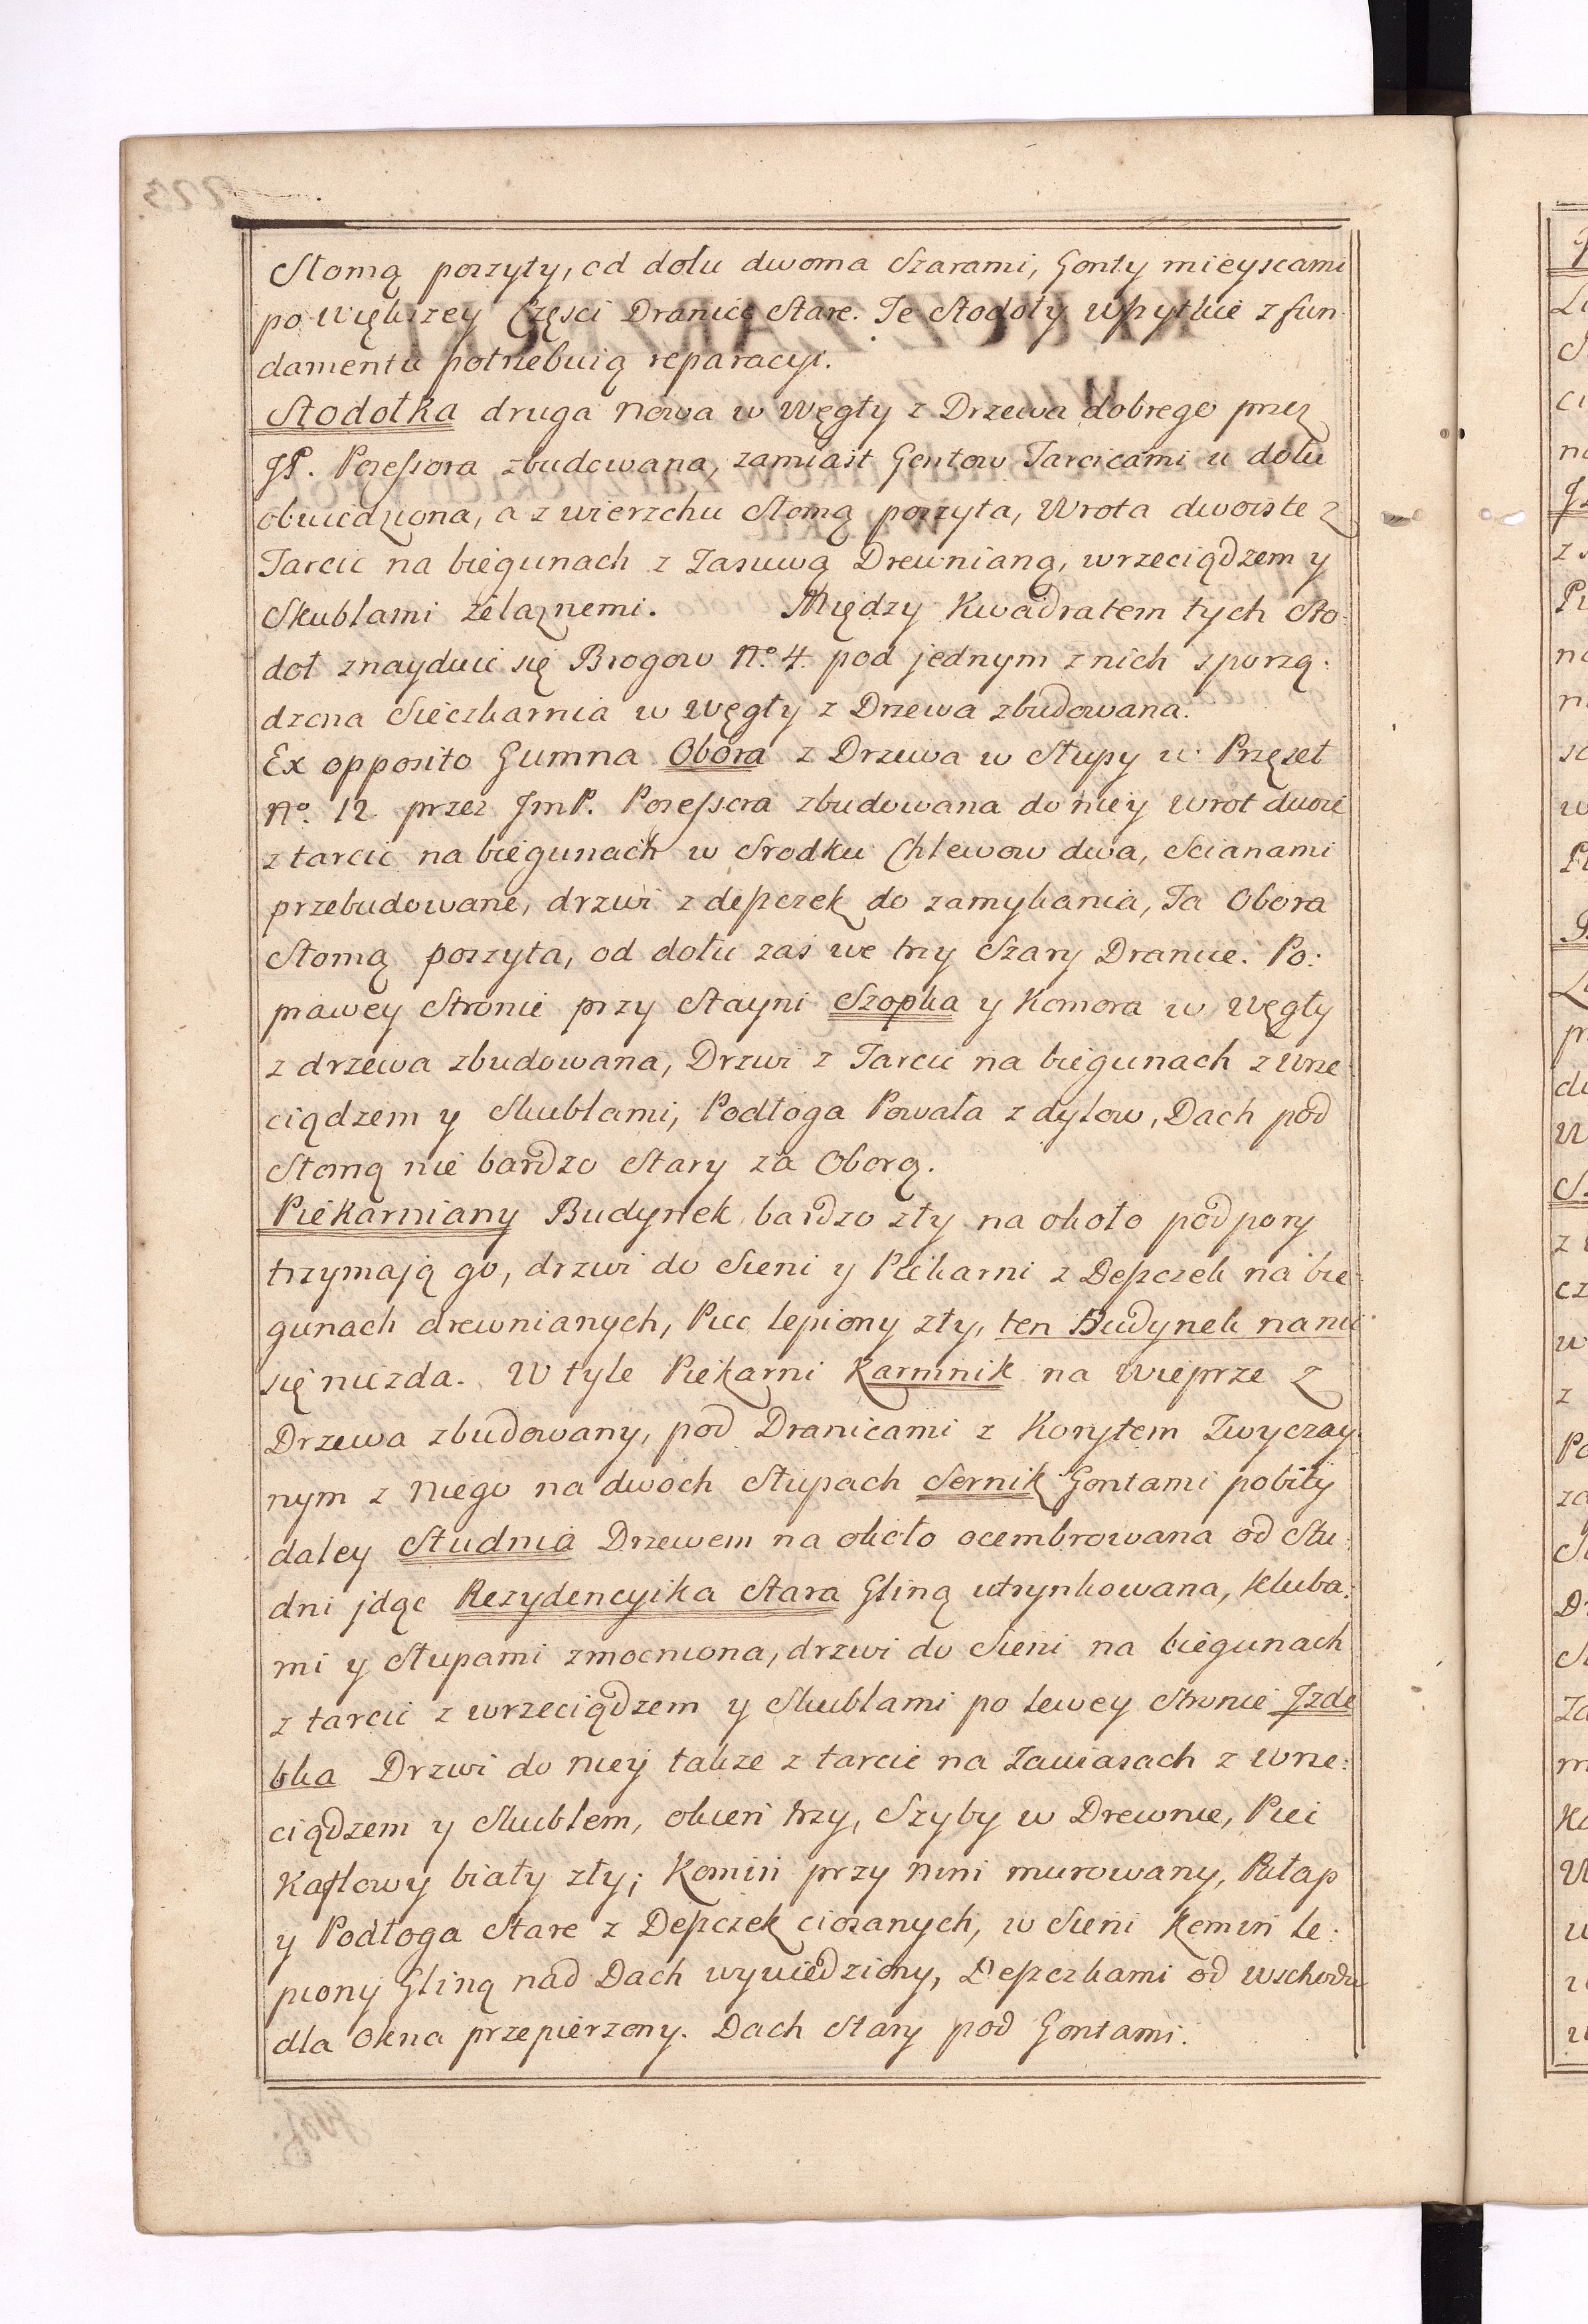 Słomą poszyty, od dołu dwoma Szarami, Gonty mieyscami
po większey Części Dranice Stare. Te Stodoły wszytkie z fun-
damentu potrzebuią reparacyi.
Stodołka druga nowa w węgły z Drzewa dobrego przez
JP. Posessora zbudowana, zamiast Gontow Tarcicami u dołu
obwiedziona, a z wierzchu Słomą poszyta, Wrota dwoiste z
Tarcic na biegunach z Zasuwą Drewnianą, wrzeciądzem y
Skublami żelaznemi. Między Kwadratem tych Sto:
doł znayduie się Brogow No. 4. pod jednym z nich sporzą:
dzona Sieczkarnia w węgły z Drzewa zbudowana.
Ex opposito Gumna Obora z Drzewa w Słupy w Przęseł
No. 12. przez JmP. Posessora zbudowana do niey wrot dwoie
z tarcic na biegunach w Srodku Chlewow dwa, Scianami
przebudowane, drzwi z depczek do zamykania, Ta Obora
Słomą poszyta, od dołu zaś we trzy Szary Dranice. Po:
prawey Stronie przy Stayni Szopka y Komora w węgły
z drzewa zbudowana, Drzwi z Tarcic na biegunach z wrze:
ciądzem y Skublami, Podłoga Powała z dylow, Dach pod
Słomą nie bardzo Stary za Oborą.
Piekarniany Budynek bardzo zły na około podpory
trzymają go, drzwi do Sieni y Piekarni z Depczek na bie:
gunach drewnianych, Piec lepiony zły, ten Budynek na nic
się niezda. W tyle Piekarni Karmnik na wieprze z
Drzewa zbudowany, pod Dranicami z Korytem Zwyczay:
nym z niego na dwoch Słupach Sernik Gontami pobity
daley Studnia Drzewem na około ocembrowana od Stu:
dni jdąc Rezydencyika Stara Gliną utrynkowana, kluba:
mi y Słupami zmocniona, drzwi do Sieni na biegunach
z tarcic z wrzeciądzem y Skublami po lewey Stronie Jzde
bka Drzwi do niey także z tarcic na Zawiasach z wrze:
ciądzem y Skublem, okien trzy, Szyby w Drewnie, Piec
Kaflowy biały zły; Komin przy nim murowany, Pułap
y Podłoga Stare z Depczek ciosanych, w Sieni Komin le:
piony Gliną nad Dach wywiedziony, Depczkami od wschodu
dla Okna przepierzony. Dach Stary pod Gontami.